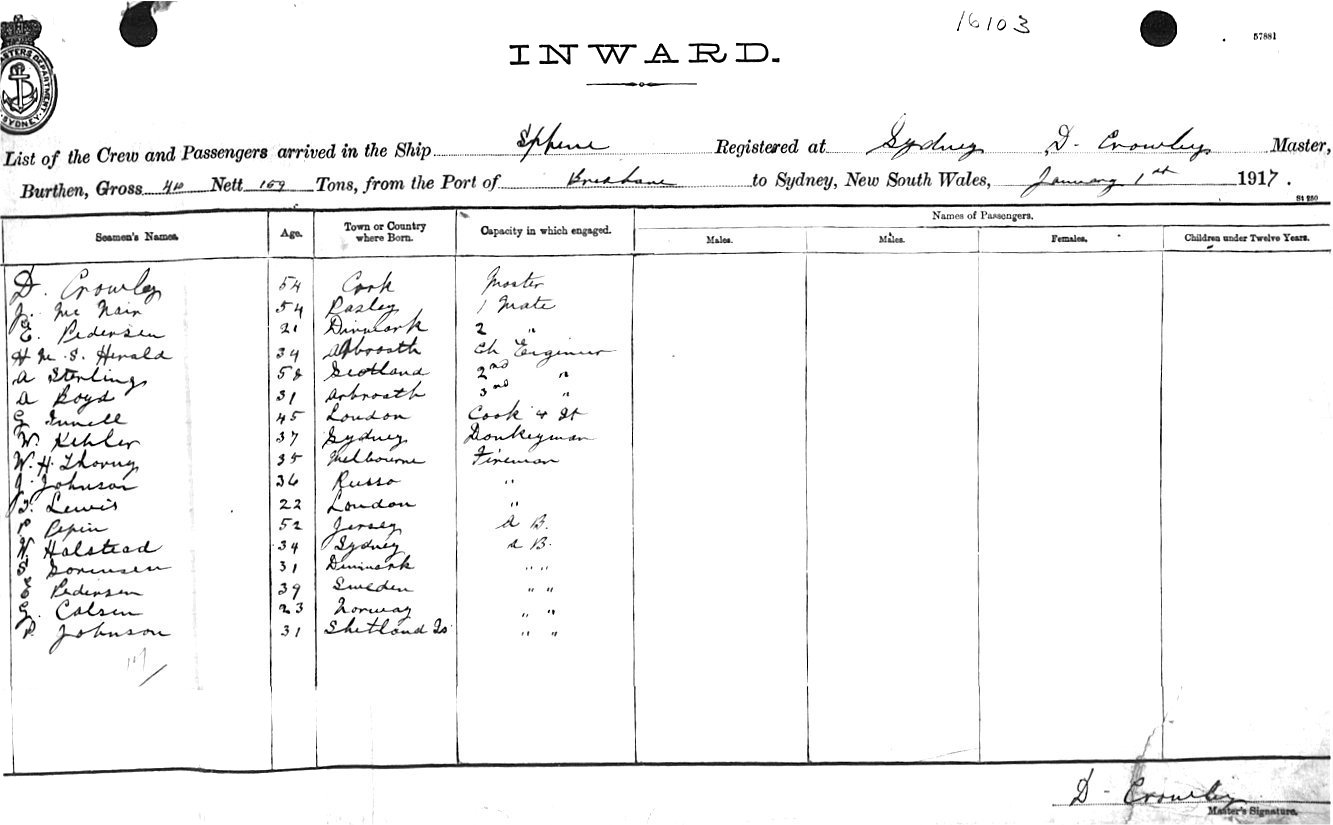 16103
57881
INWARD.
MASTERS DEPARTMENT
SYDNEY
List of the Crew and Passengers arrived in the Ship Sphene Registered at Sydney D. Crowley Master,
Burthen, Gross Nett 159 Tons, from the Port of Brisbane to Sydney, New South Wales, January 1st 1917.
St 250
Seamen's Names. Age. Town or Country where Born. Capacity in which engaged. Names of Passengers.
Males. Males. Females. Children under Twelve Years.
D. Crowley 54 Cork Master
J. Mc Nair 54 Pasley 1 Mate
E. Pedersen 21 Dinmark 2 "
H Mc S. Herald 34 Arbroath Ch Engineer
A Sterling 58 Scotland 2nd "
A Boyd 31 Arbroath 3rd "
G 45 London Cook & St
W. Kehler 37 Sydney Donkeyman
W. H. Thorny 35 Melbourne Fireman
J. Johnson 36 Russo "
T. Lewis 22 London "
P Pepin 52 Jersey A B.
W. Halstead 34 Sydney A B.
S Sorensen 31 Dinmark " "
E Pedersen 39 Sweden " "
G. Calsen 23 Norway " "
P. Johnson 31 Shetland Is " "
17/
D. Crowley
Master's Signature.